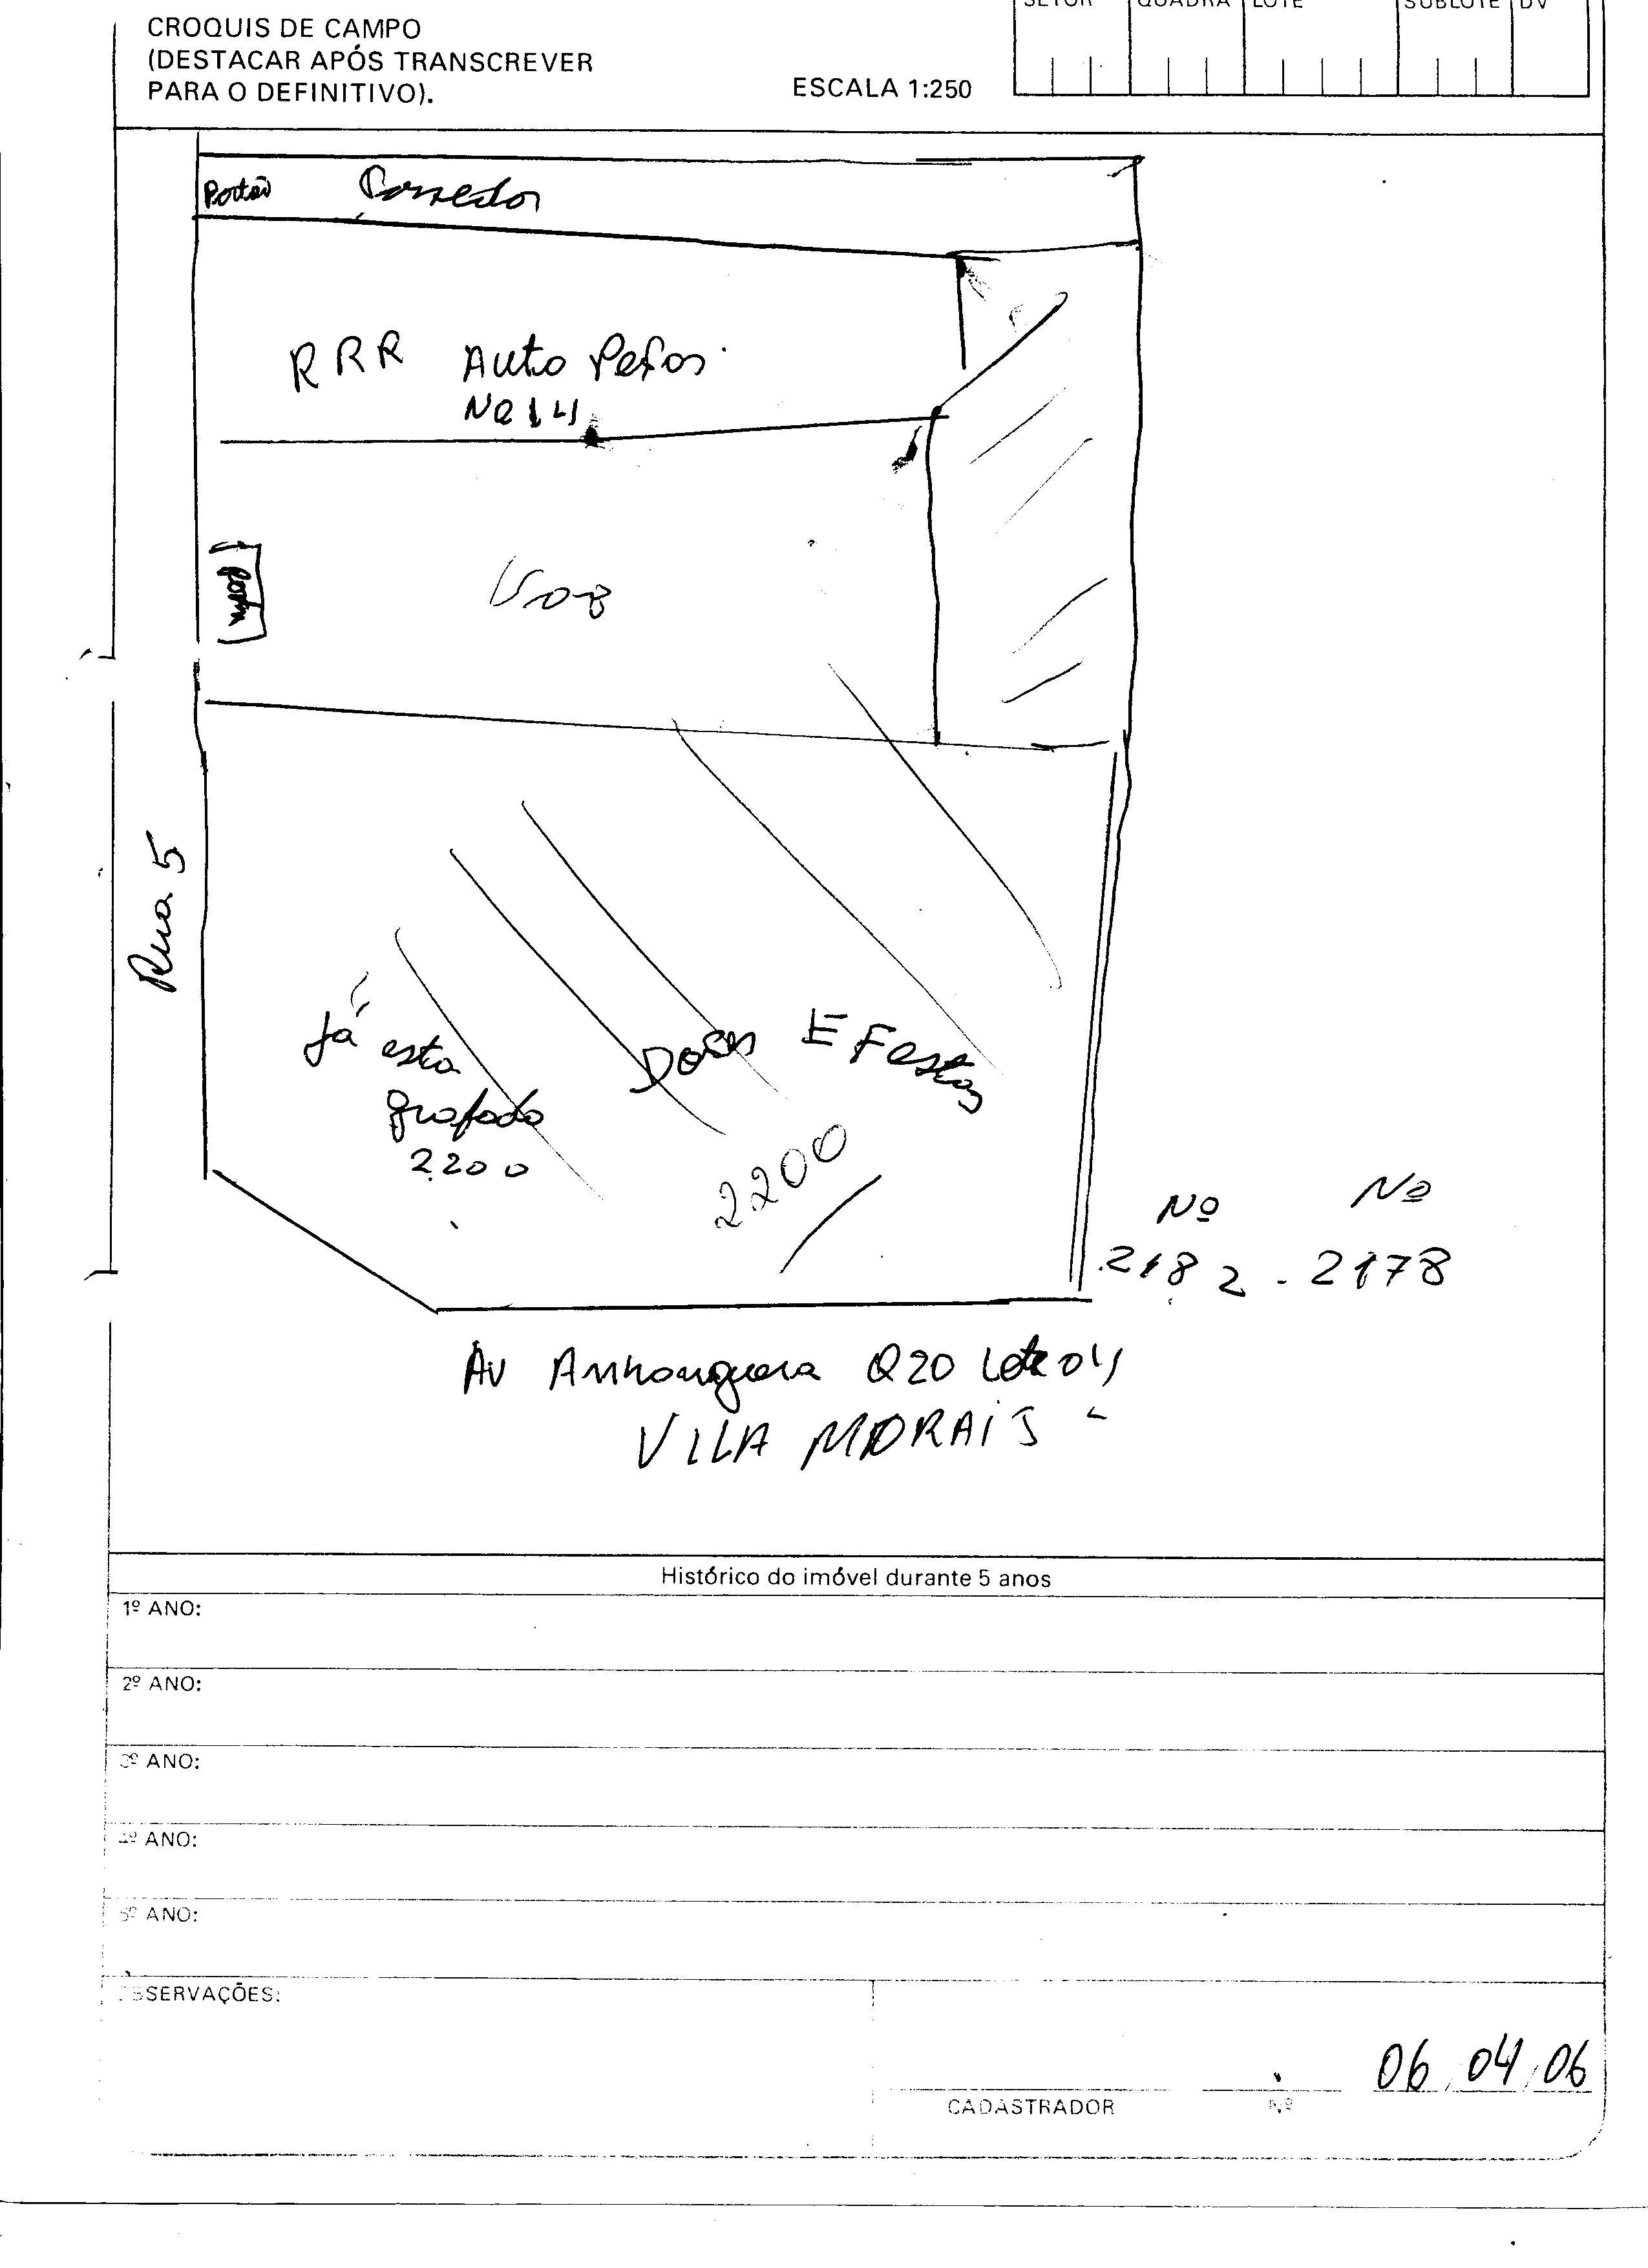 SETOR QUADRA LOTE SUBLOTE DV
CROQUIS DE CAMPO
(DESTACAR APÓS TRANSCREVER
PARA O DEFINITIVO).
ESCALA 1:250
Portão Corredor
RRR Auto Peças
Nº 14
porta
Rua 5
Já esta
grafado
2200
Doces E Festas
2200
Nº Nº
2182 - 2178
Av Anhanguera Q20 Lote 04
VILA MORAIS
Histórico do imóvel durante 5 anos
1º ANO:
2º ANO:
3º ANO:
4º ANO:
5º ANO:
OBSERVAÇÕES:
06 04 06
CADASTRADOR Nº